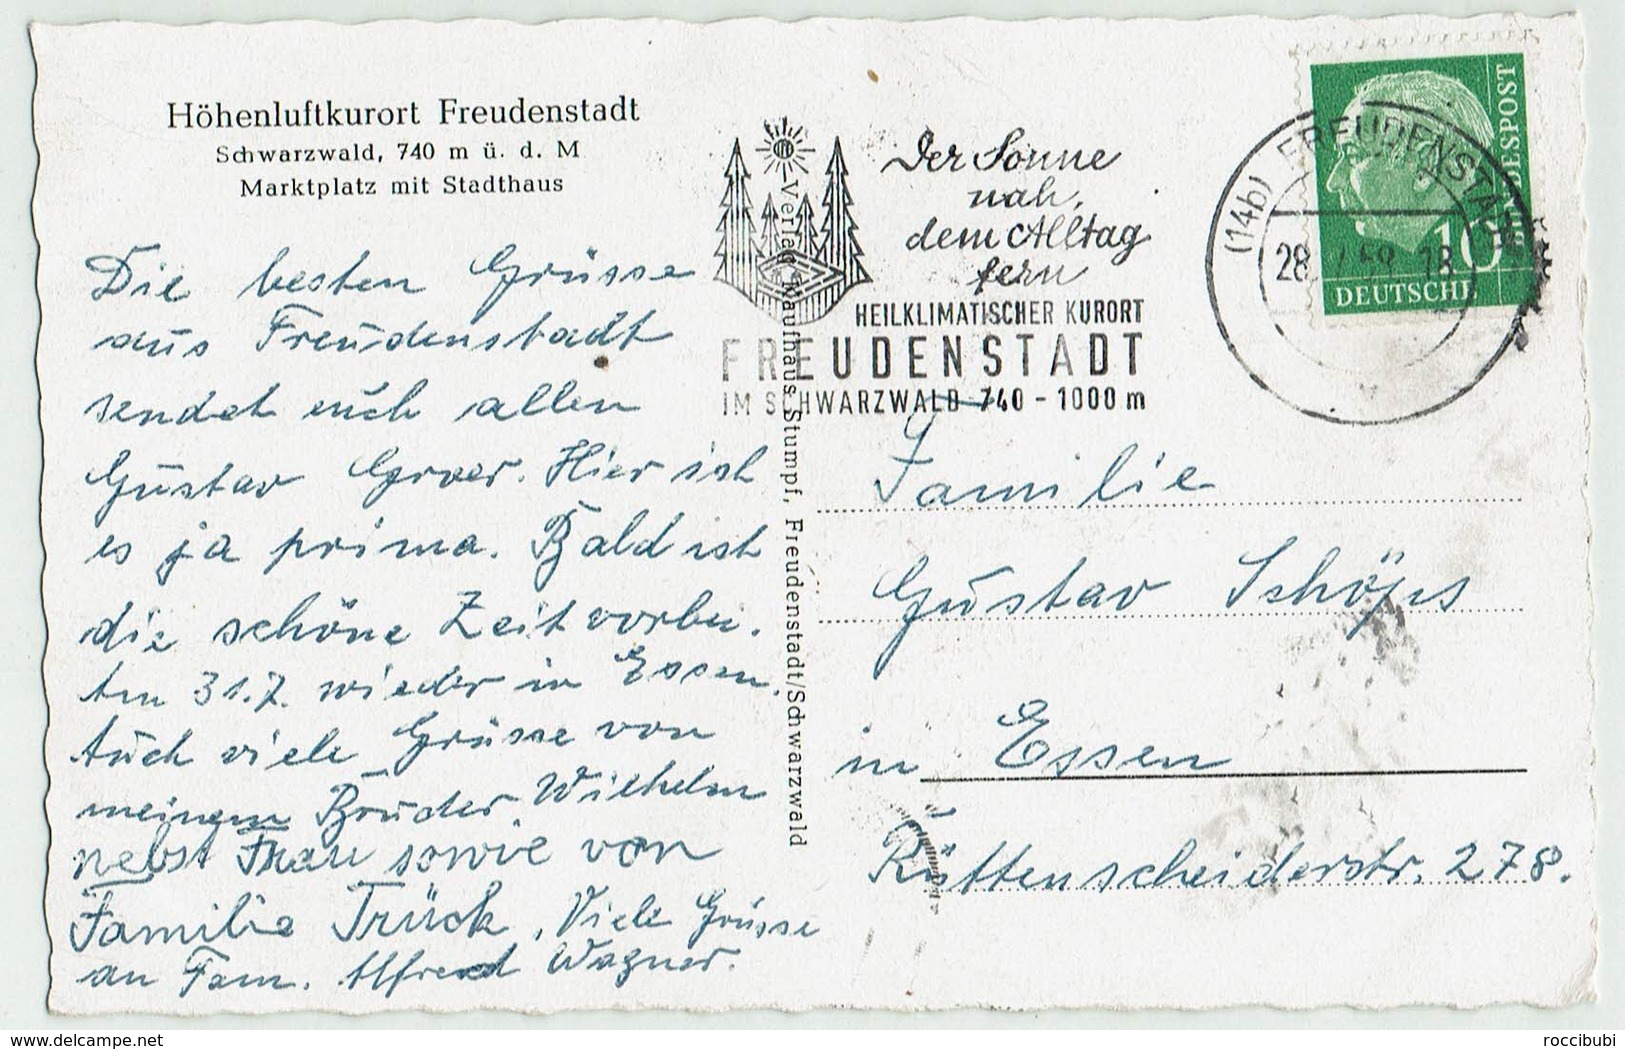 Höhenluftkurort Freudenstadt
Schwarzwald, 740 m ü. d. M
Marktplatz mit Stadthaus
Die besten Grüsse
aus Freudenstadt
sendet euch allen
Gustav Hier ist
es ja prima. Bald ist
die schöne Zeit vorbei.
Am 31.7. wieder in Essen.
Auch viele Grüsse von
meinem Bruder Wilhelm
nebst Frau sowie von
Familie Trück. Viele Grüsse
an Fam. Alfred Wagner.
Verlag Kaufhaus Stumpf, Freudenstadt/Schwarzwald
Der Sonne
nah,
dem Alltag
fern
HEILKLIMATISCHER KURORT
FREUDENSTADT
IM SCHWARZWALD 740 - 1000 m
(14b) FREUDENSTADT
28. 58 18
10
BUNDESPOST
DEUTSCHE
Familie
Gustav Schöps
in Essen
Rüttenscheiderstr. 278.
delcampe.net
roccibubi